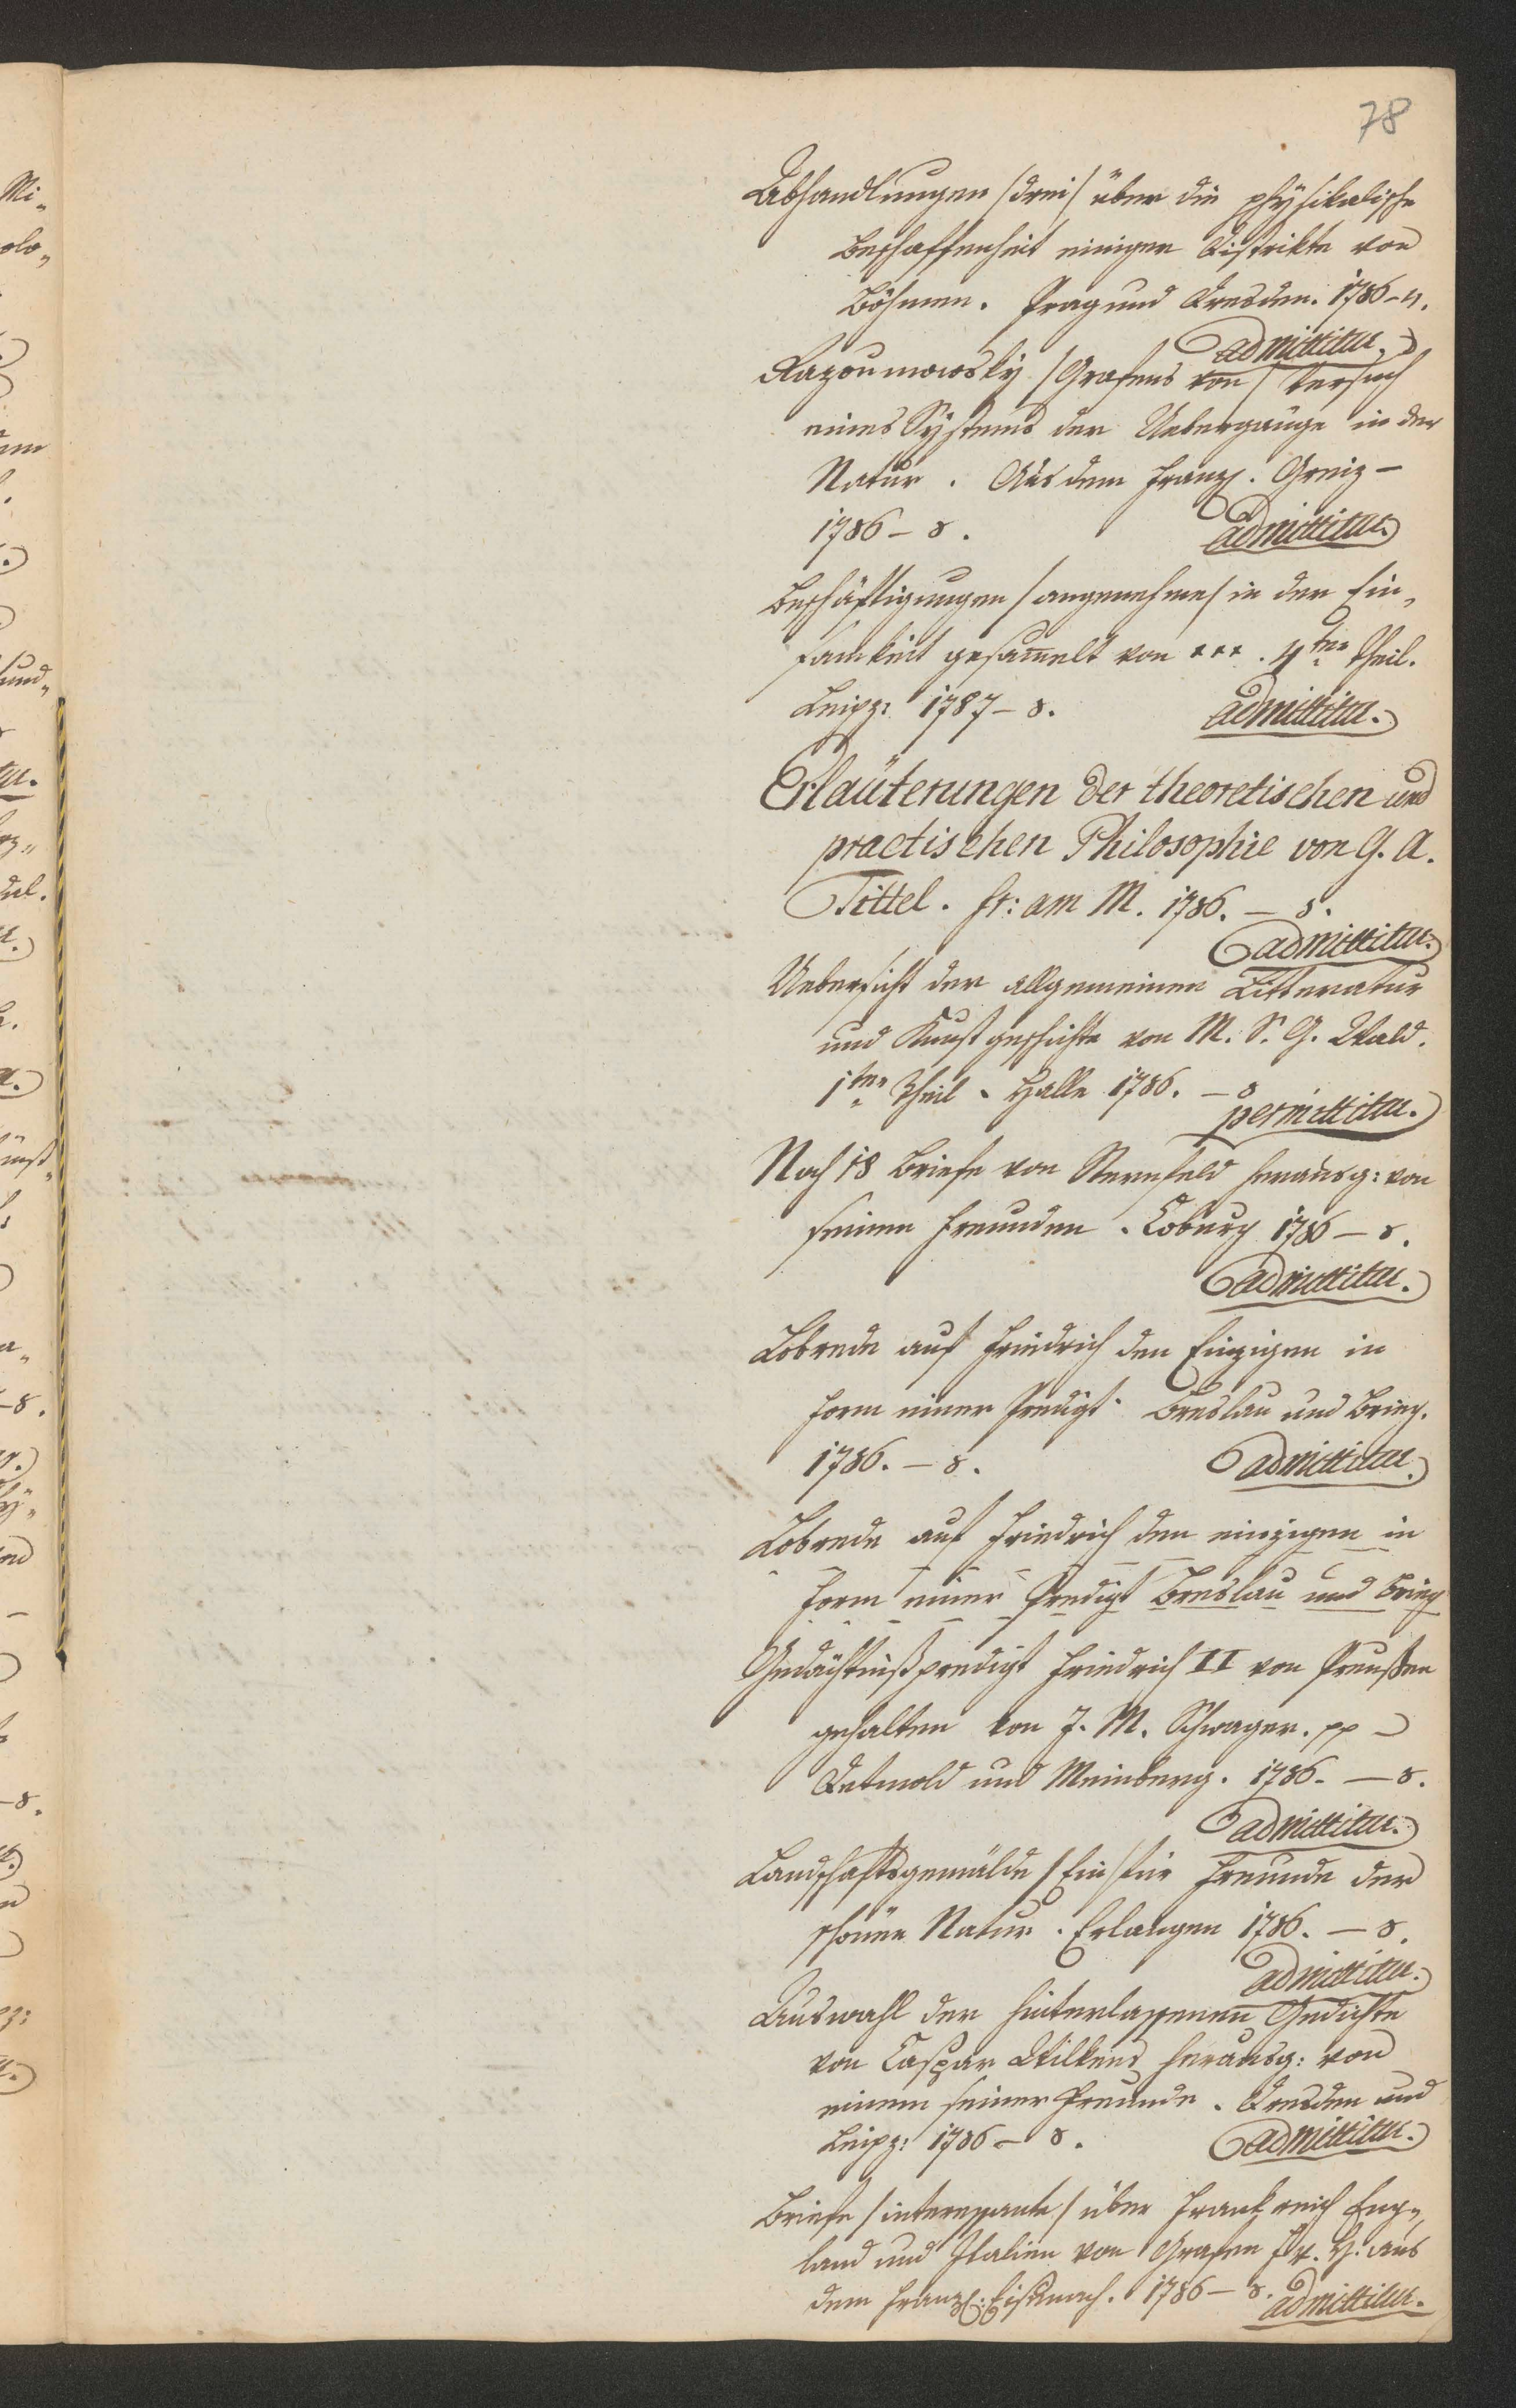 78
Abhandlungen /drei/ über die physikalische
Beschaffenheit einiger Distrikte von
Böhmen. Prag und Dresden. 1786 – 4.
admittitur.
Razoumowsky /Grafens von/ Versuch
eines Systems der Uebergänge in der
Natur. Aus dem Franz. Greiz –
1786 – 8.
admittitur.
Beschäftigungen /angenehme/ in der Ein„
samkeit gesam̄elt von ***. 4ter Theil.
Leipz: 1787 – 8.
admittitur.
Erläuterungen der theoretischen und
practischen Philosophie von G. A.
Tittel. Fr: am M. 1786. – 8.
admittitur.
Uebersicht der allgemeinen Litteratur
und Kunstgeschichte von M. S. G. Wald.
1ter Theil. Halle 1786. – 8
permittitur.
Noch 18 Briefe von Sternfeld herausg: von
seinen Freunden. Coburg 1786 – 8.
admittitur.
Lobrede auf Friedrich den Einzigen in
Form einer Predigt. Breslau und Brieg.
1786. – 8.
admittitur.
Lobrede auf Friedrich den einzigen in
Form einer Predigt Breslau und Brieg
Gedächtnißpredigt Friedrich II von Preußen
gehalten von J. M. Schwager. pp –
Detmold und Meinberg. 1786. – 8.
admittitur.
Landschaftsgemälde /Ein/ für Freunde der
schönen Natur. Erlangen 1786. – 8.
admittitur.
Auswahl der hinterlassenen Gedichte
von Caspar Wilkens herausg: von
einem seiner Freunde. Dresden und
Leipz: 1786 – 8.
admittitur.
Briefe /interessante/ über Frankreich Eng„
land und Italien von Grafen Fr. H. aus
dem Franz: Eisenach. 1786 – 8.
admittitur.